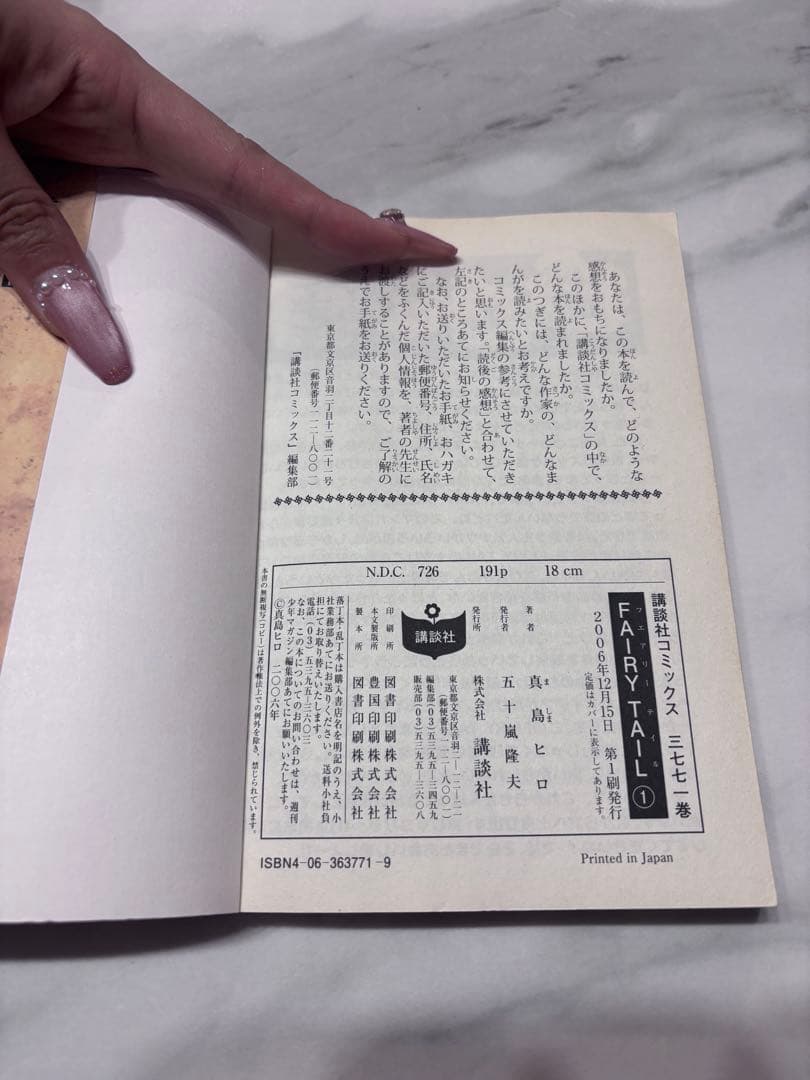 あなたは、この本を読んで、どのような
感想をおもちになりましたか。
このほかに、「講談社コミックス」の中で、
どんな本を読まれましたか。
このつぎには、どんな作家の、どんなま
んがを読みたいとお考えですか。
コミックス編集の参考にさせていただき
たいと思います。「読後の感想」と合わせて、
左記のところあてにお知らせください。
なお、お送りいただいたお手紙、おハガキ
にご記入いただいた郵便番号、住所、氏名
などをふくんだ個人情報を、著者の先生に
お渡しすることがありますので、ご了解の
うえでお手紙をお送りください。
東京都文京区音羽二丁目十二番二十一号
(郵便番号一一二―八〇〇一)
「講談社コミックス」編集部
N.D.C. 726 191p 18 cm
講談社コミックス 三七七一巻
フェアリーテイル
FAIRY TAIL ①
2006年12月15日 第1刷発行
定価はカバーに表示してあります。
著者 真島ヒロ
発行者 五十嵐隆夫
発行所 株式会社 講談社
東京都文京区音羽二―一二―二一
(郵便番号一一二―八〇〇一)
編集部(03)五三九五―三四五九
販売部(03)五三九五―三六〇八
講談社
印刷所 図書印刷株式会社
本文製版所 豊国印刷株式会社
製本所 図書印刷株式会社
落丁本・乱丁本は購入書店名を明記のうえ、小
社業務部あてにお送りください。送料小社負
担にてお取り替えいたします。
電話(03)五三九五―三六〇三
なお、この本についてのお問い合わせは、週刊
少年マガジン編集部あてにお願いいたします。
©真島ヒロ 二〇〇六年
本書の無断複写(コピー)は著作権法上での例外を除き、禁じられています。
ISBN4-06-363771-9
Printed in Japan